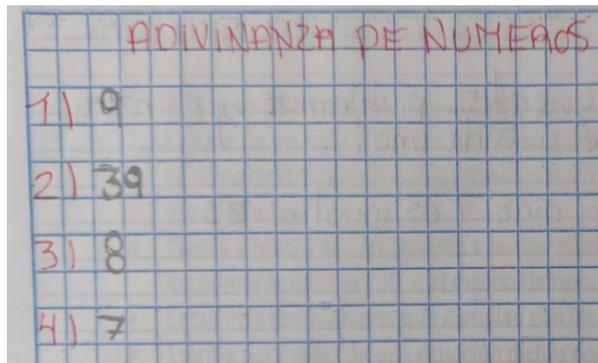 ADIVINANZA DE NUMEROS
1) 9
2) 39
3) 8
4) 7